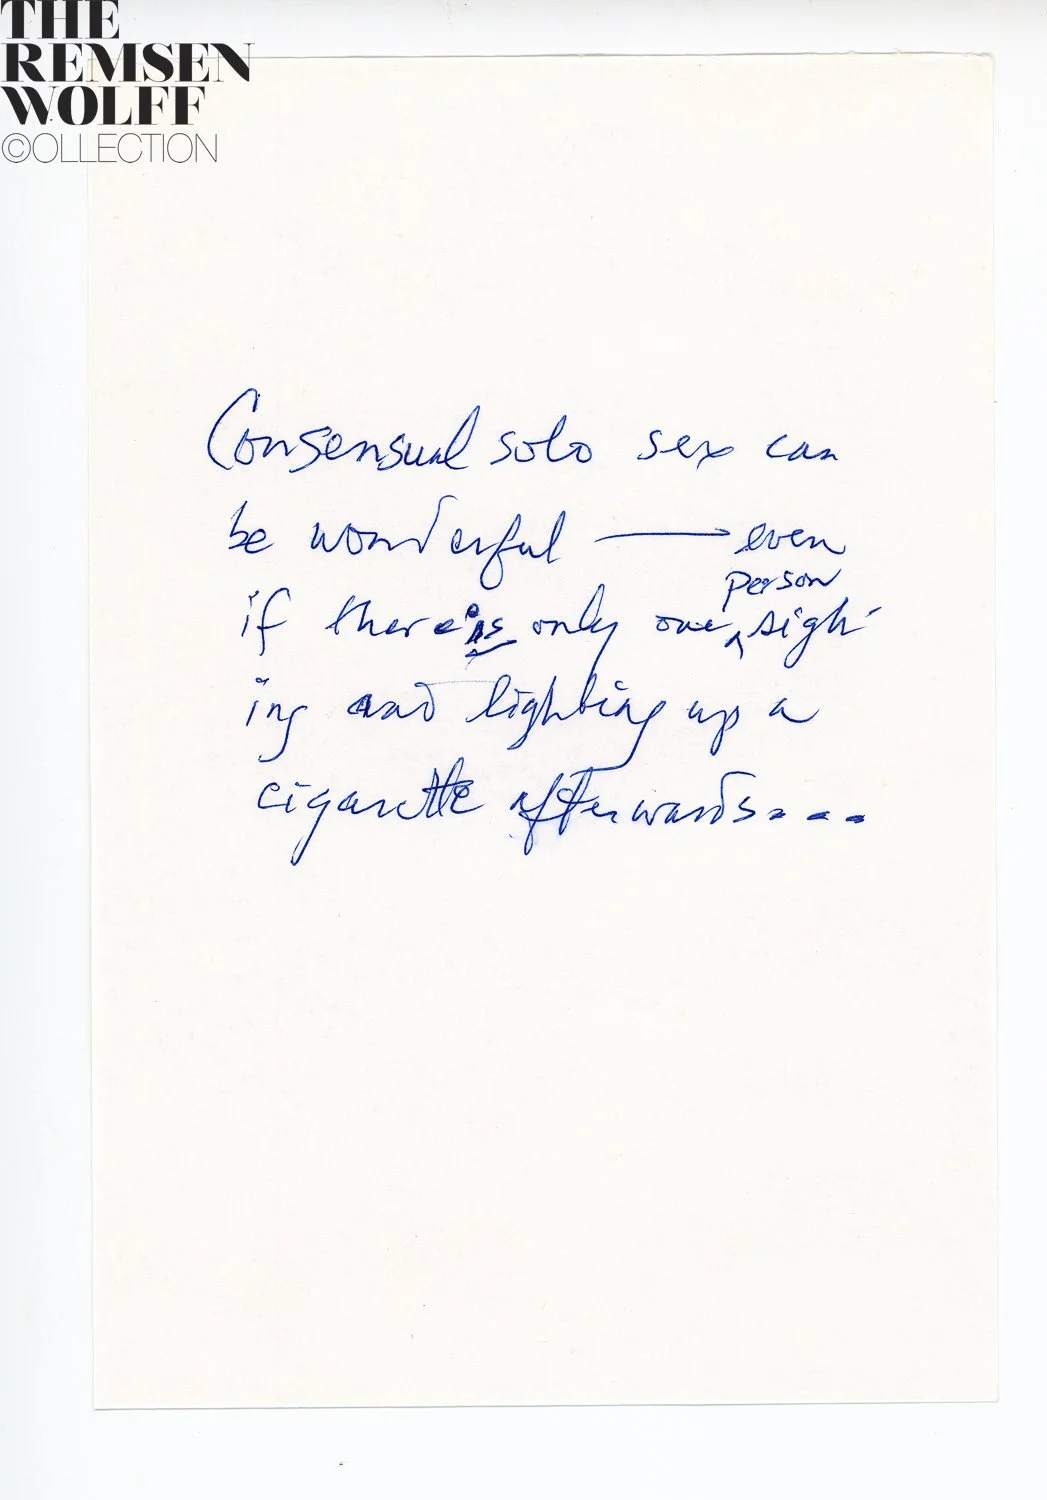 THE
REMSEN
WOLFF
©OLLECTION
Consensual solo sex can
be wonderful — even
person
if there is only one ^ sigh-
ing and lighting up a
cigarette afterwards....